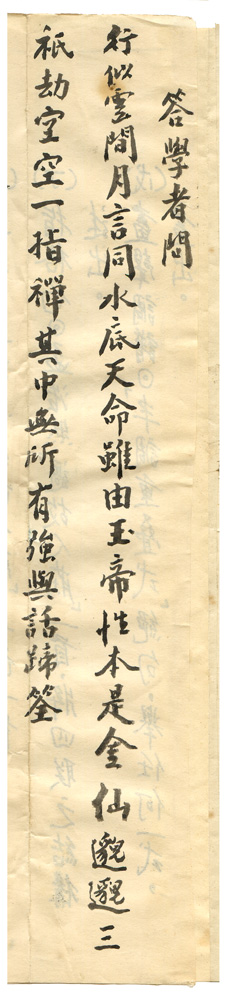 答學者問
行似雲間月言同水底天命雖由玉帝性本是金仙邈邈三
祇劫空空一指禪其中無所有強與話蹄筌